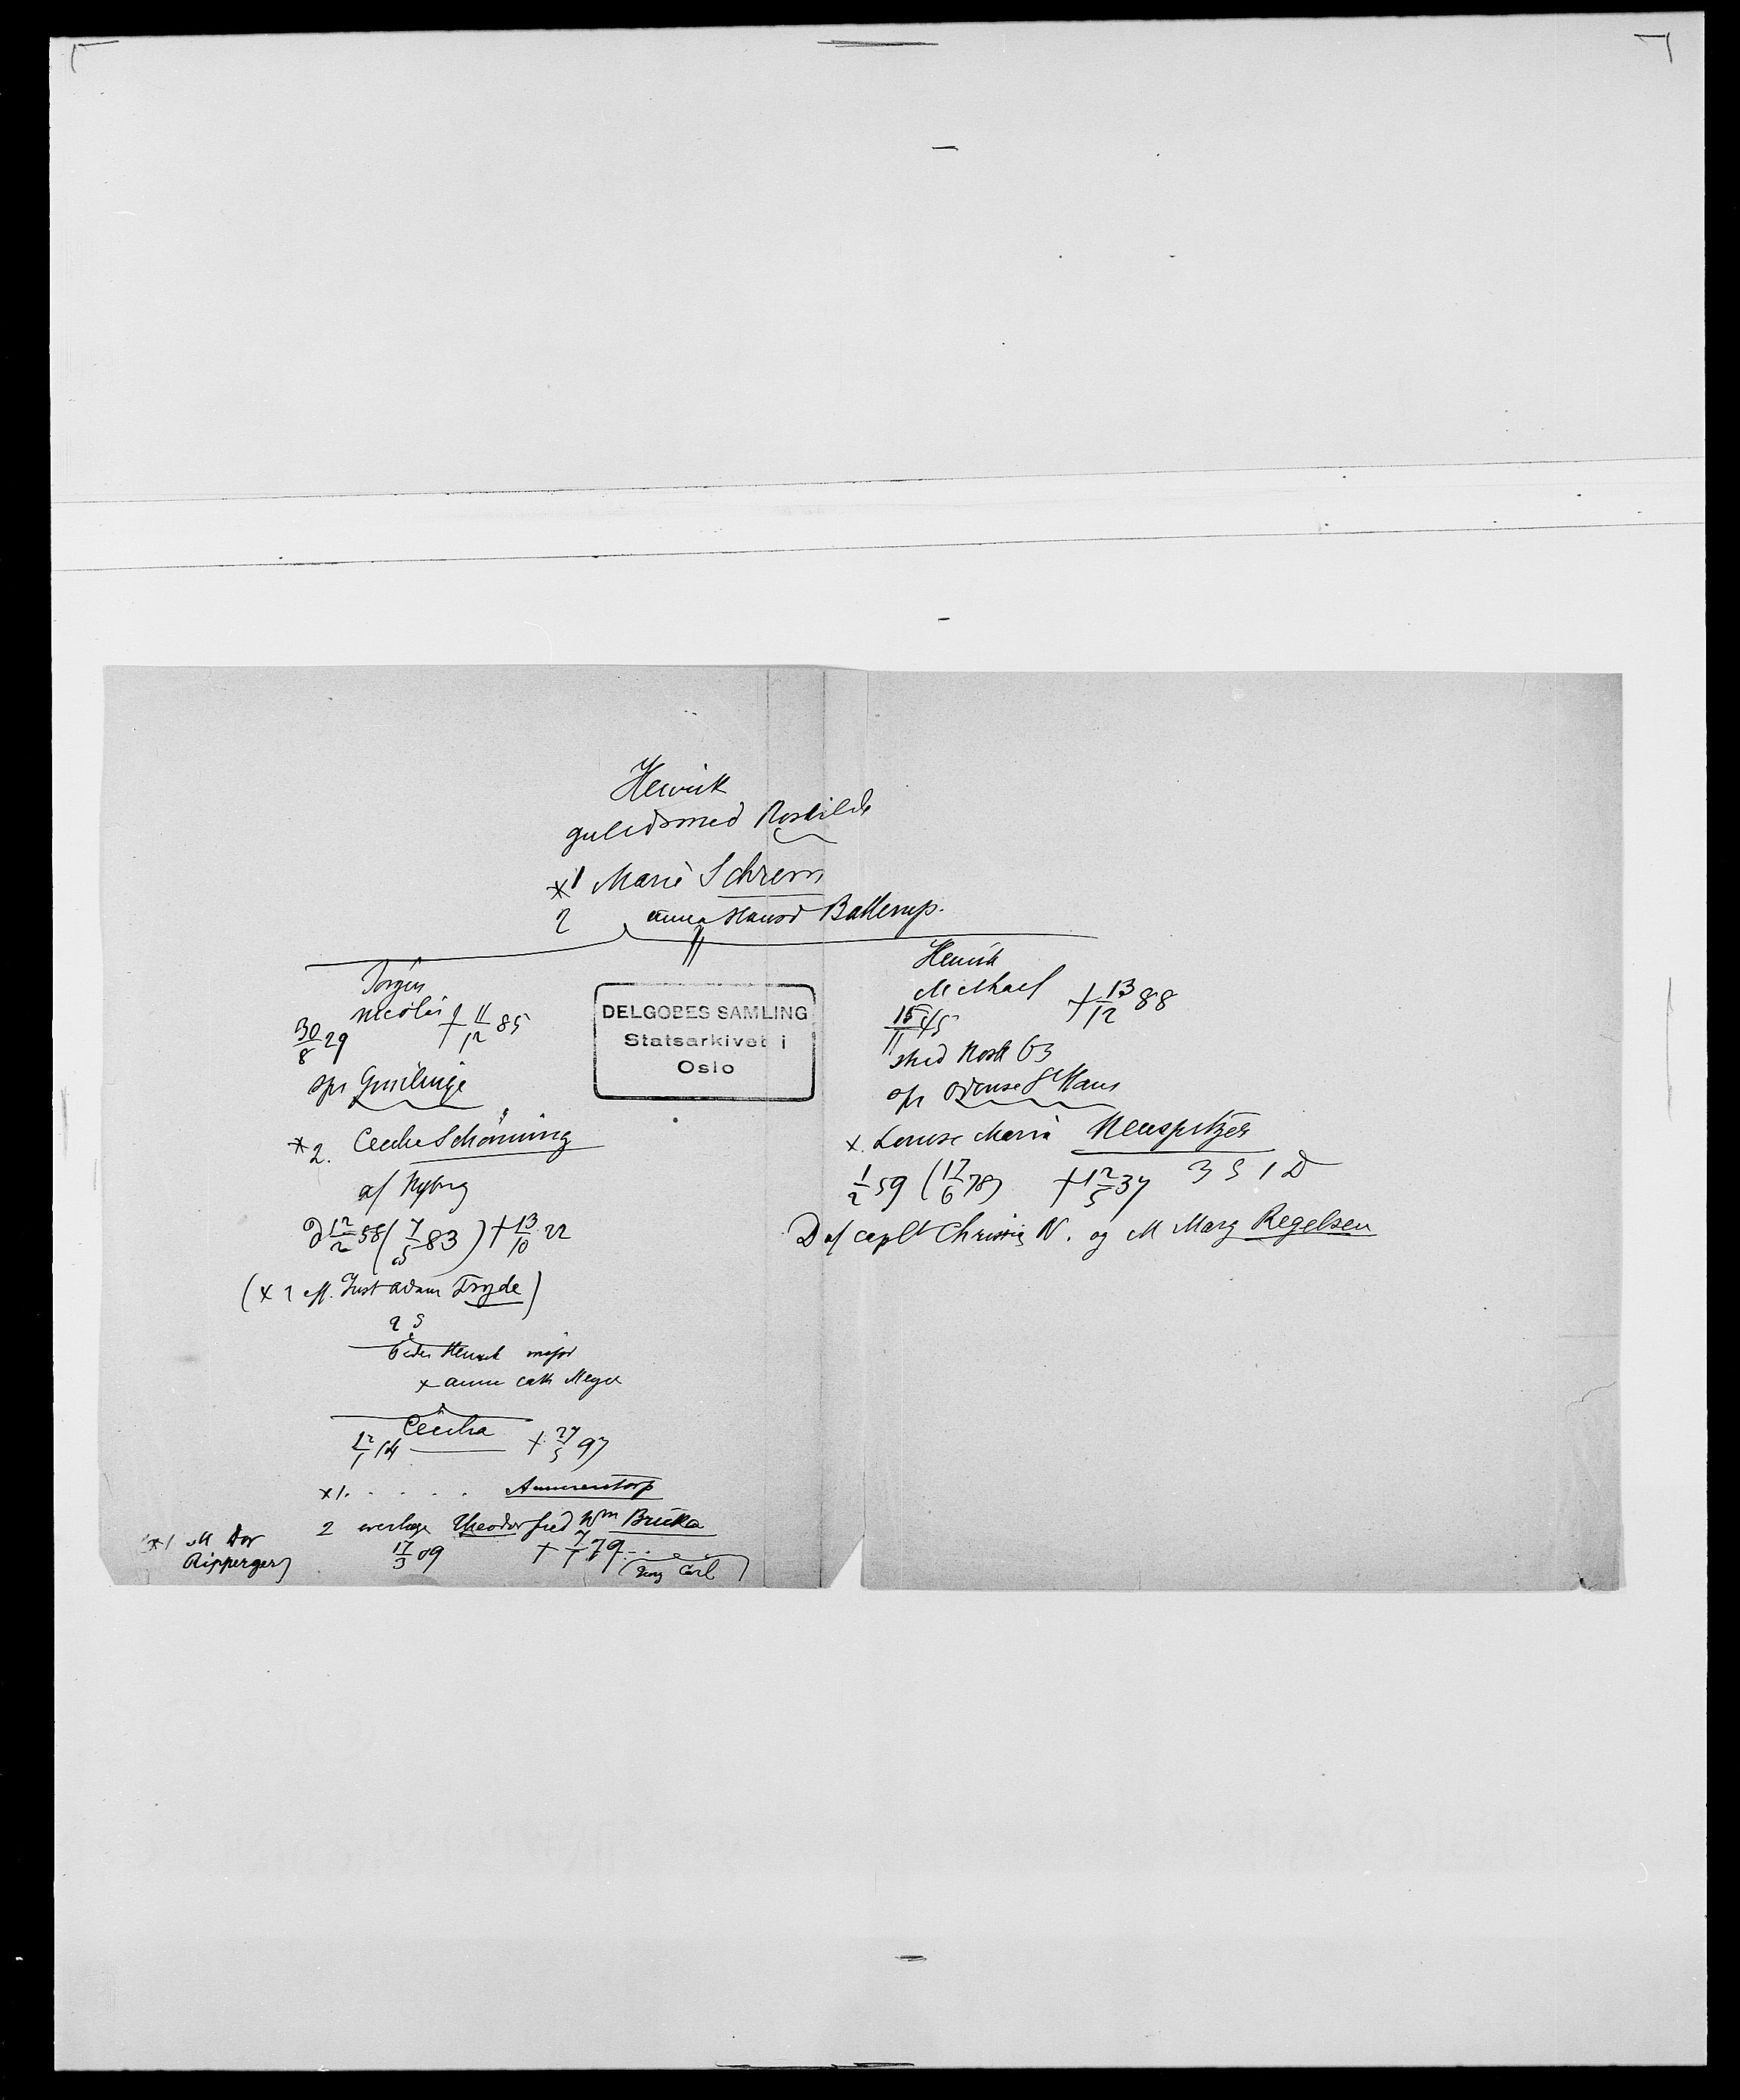 Henrik
guldsmed Roskilde
x1 Marie Schrem
2 Anna Hansd Ballerup.
Jørgen
Nicolai † 11/12 85
30/8 29
spr Gmilinge
x 2. Cecilie Schönning
af Nyborg
D 12/2 58 (7/5 83) † 13/10 22
(x 1 eft. Just Adam Tryde)
2 S
Peder Henrik major
x Anne Cath Meyer
Cecilia
12/1 14 † 27/5 97
x1. . . . . Ammentorp
2 overlæge Theodor Fred Wm Bricka
17/3 09 † 7/1 79
x1 M Dor
Ripperger)
(Carl)
DELGOBES SAMLING
Statsarkivet i
Oslo
Henrik
Michael † 13/12 88
15/11 45
stud Rosk 63
spr Odense St Hans
x. Lovise Maria Neuspitzer
1/2 59 (17/6 78) † 12/5 37 3 S 1 D
D af capt Christian N. og M Marg Regelsen